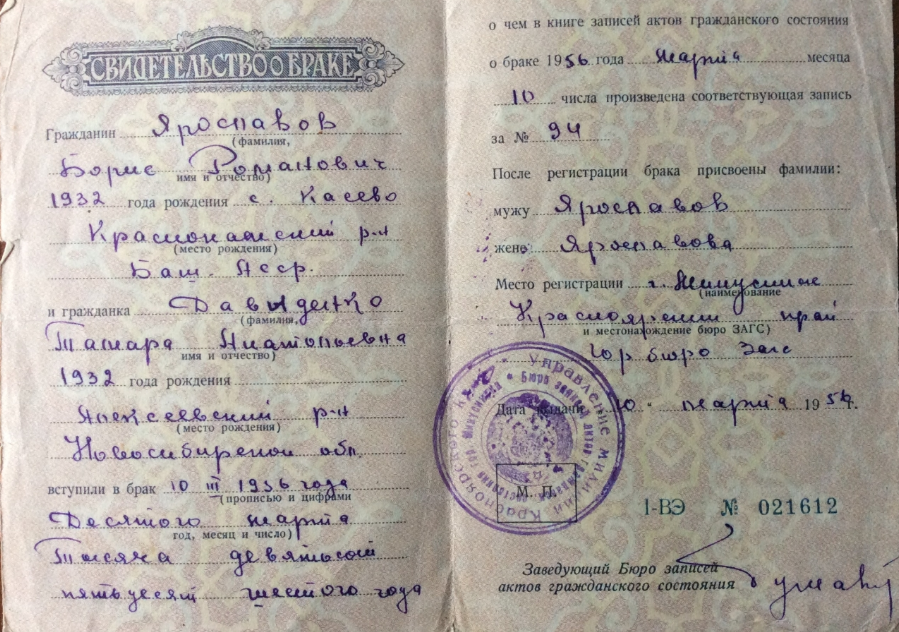 СВИДЕТЕЛЬСТВО О БРАКЕ
Гражданин Ярославов
(фамилия,
Борис Романович
имя и отчество)
1932 года рождения с. Касево
Краснокамский р-н
(место рождения)
Баш. Асср.
и гражданка Давыденко
(фамилия,
Тамара Анатольевна
имя и отчество)
1932 года рождения
Алексеевский р-н
(место рождения)
Новосибирской обл.
вступили в брак 10 III 1956 года
(прописью и цифрами
Десятого марта
год, месяц и число)
Тысяча девятьсот
пятьдесят шестого года
о чем в книге записей актов гражданского состояния
о браке 1956 года марта месяца
10 числа произведена соответствующая запись
за № 94
После регистрации брака присвоены фамилии:
мужу Ярославов
жене Ярославова
Место регистрации г. Минусинск
(наименование
Красноярский край
и местонахождение бюро ЗАГС)
Гор бюро Загс
Дата выдачи 10 " марта 1956 г.
М. П.
Управление милиции Красноярского края
Бюро записи актов гражданского состояния гор. Минусинска
I-ВЭ № 021612
Заведующий Бюро записей
актов гражданского состояния